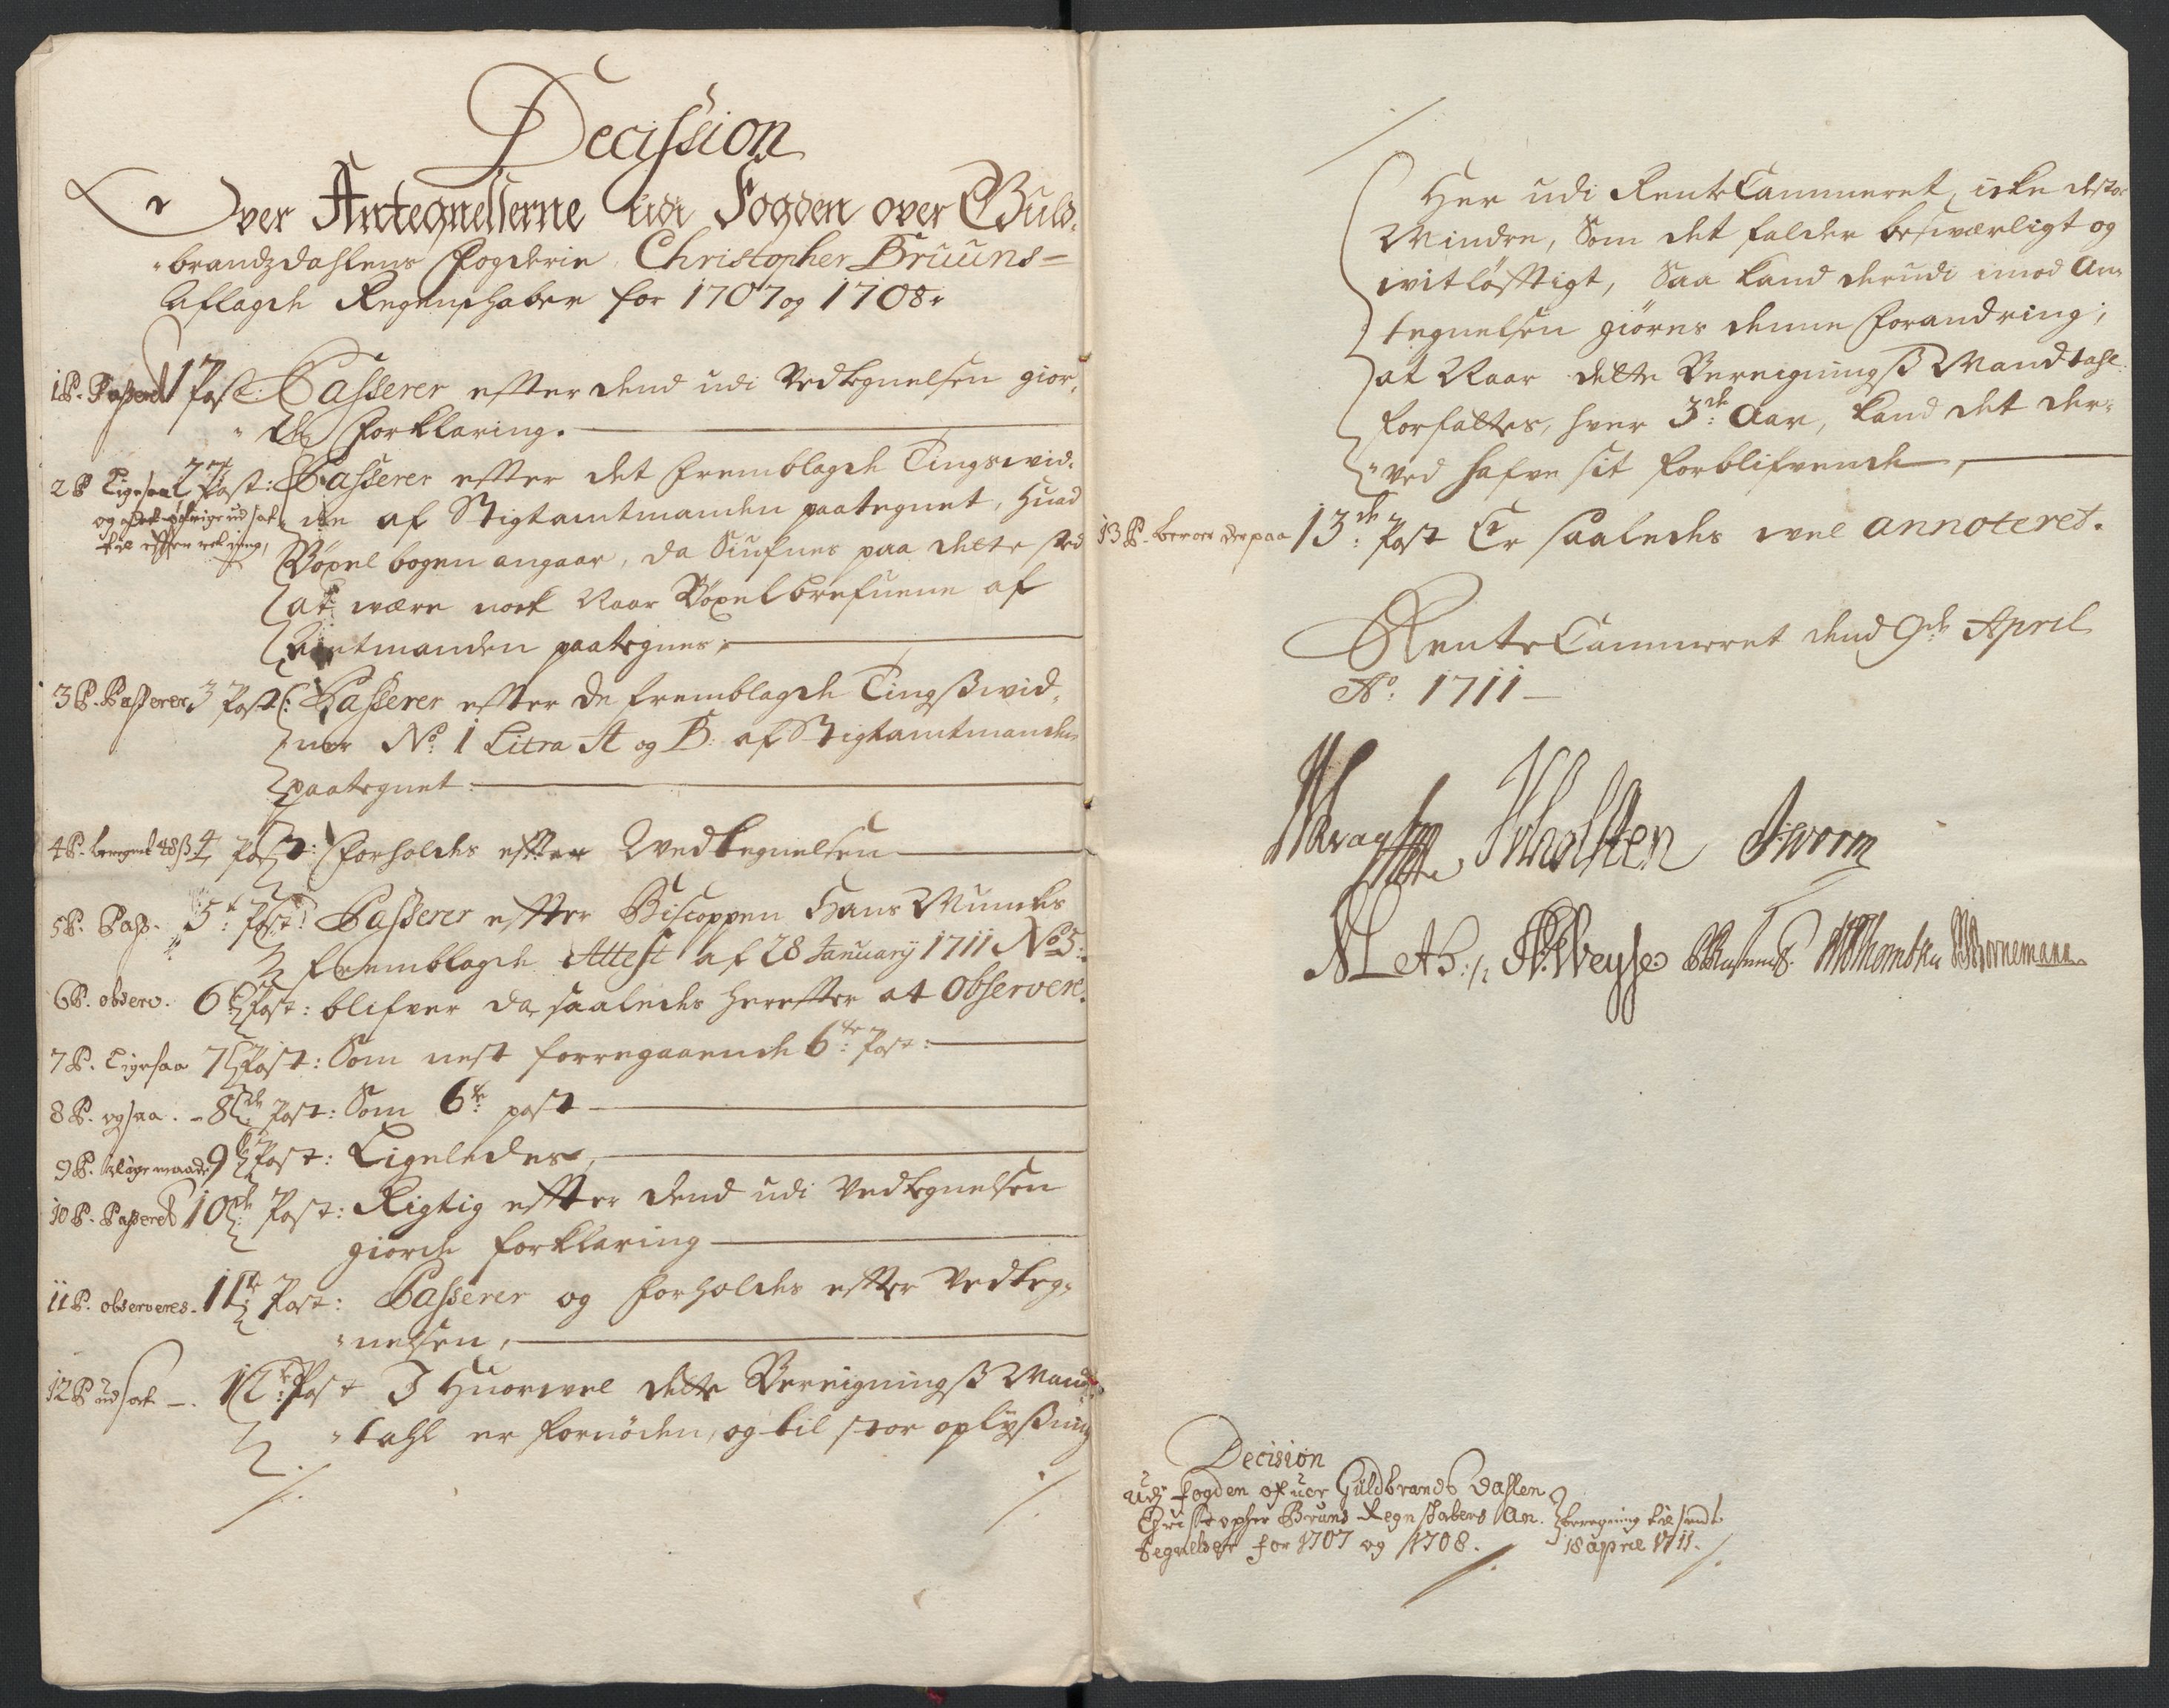 Decission
Over Antegnelserne udi Fogden over Guld-
brandzdahlens Fogderie Christopher Bruuns
Aflagde Regenschaber for 1707 og 1708.
1 P. Passeret 1 Post: Passerer effter dend udi Vedtegnelsen gior-
de Forklaring.
2 P. Ligesaa 2 Post: Passerer effter det fremblagde Tingswid-
ne af Stigtamtmanden paategnet, Huad
Böxel bogen angaar, da Siufnes paa dette sted
at være nock Naar Böxelbrefuene af
Amtmanden paategnes,
3 P. Passerer 3 Post: Passerer effter de fremblagde Tingßwid-
ner No. 1 Litra A og B: af Stigtamtmanden
paategnet
4 P. beregnet 48 ß 4 Post: Forholdes effter Wedtegnelsen
5 P. Pass. 5te Post: Passerer effter Biscoppen Hans Munchs
fremblagde Attest af 28 January 1711 No 5:
6 P. observ. 6te Post: blifver da saaledes hereffter at observere.
7 P. Ligesaa 7 Post: Som nest forregaaende 6te Post:
8 P. ogsaa. 8de Post: Som 6te post
9 P. i lige maade 9 Post: Ligeledes,
10 P. Passeret 10de Post: Rigtig effter dend udi Vedtegnelsen
giorde forklaring
11 P. observeres. 11te Post: Passerer og forholdes effter Vedteg-
nelsen,
12 P. udsat 12te Post I Huorvel dette Bereigningß Mand-
tahl er fornöden, og til stor oplyßning
Her udi RenteCammeret, icke desto
Mindre, Som det falder besværligt og
vitløfftigt, Saa kand derudi imod An-
tegnelsen giöres denne forandring,
at Naar dette Bereigningß Mandtahl
forfattes, hver 3de Aar, kand det der-
ved hafve sit forblifvende,
13 P. beroer der paa 13de Post Er saaledes vel annoteret.
RenteCammeret dend 9de April
Ao. 1711
JWholsten JWorm
Weyse Bornemann
Decision
Udj fogden ofuer Guldbrands Dahlen
Christopher Bruns Regnskabers An-
tegnelser for 1707 og 1708.
beregning till sendt
18 april 1711.